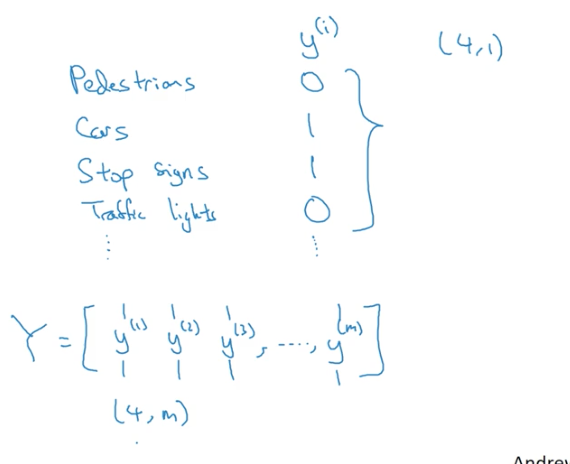 y^(i) (4,1)
Pedestrians 0
Cars 1
Stop signs 1
Traffic lights 0
⋮ ⋮
Y = [ y^(1) y^(2) y^(3), ----, y^(m) ]
(4, m)
Andrew